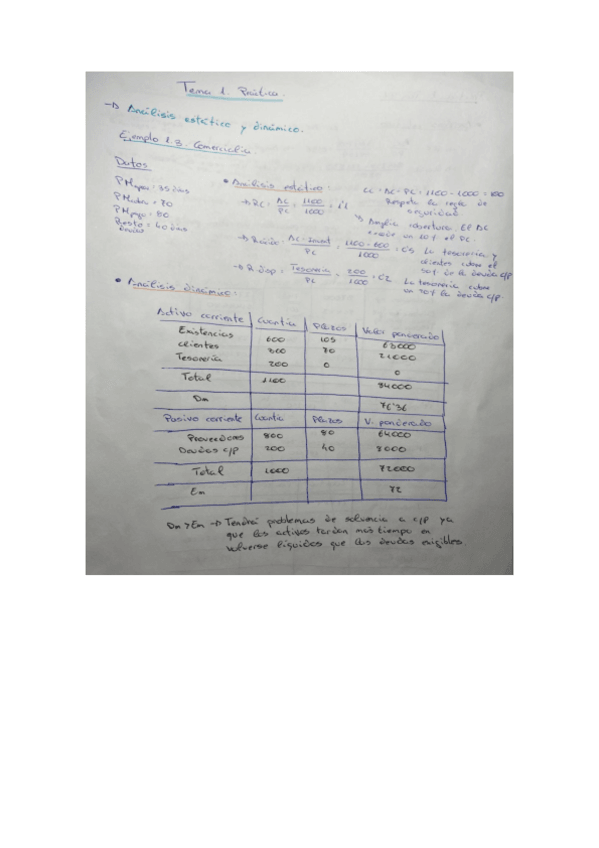 Tema 1. Práctica.
→ Análisis estático y dinámico.
Ejemplo 1.3. Comercialia
Datos
PMapro = 35 días
PMcobro = 70
PMpago = 80
Resto deudas = 40 días
• Análisis estático:
CC = AC - PC = 1100 - 1000 = 100
Respeta la regla de seguridad
→ RC = AC / PC = 1100 / 1000 = 1'1
→ Amplia cobertura. El AC excede un 10% el PC.
→ R ácido = AC - Exist / PC = 1100 - 600 / 1000 = 0'5
La tesorería y clientes cubre el 50% de la deuda c/p
→ R disp = Tesorería / PC = 200 / 1000 = 0'2
La tesorería cubre un 20% la deuda c/p.
• Análisis dinámico:
Activo corriente Cuantía Plazos Valor ponderado
Existencias 600 105 63000
Clientes 300 70 21000
Tesorería 200 0 0
Total 1100 84000
Dm 76'36
Pasivo corriente Cuantía Plazos V. ponderado
Proveedores 800 80 64000
Deudas c/p 200 40 8000
Total 1000 72000
Em 72
Dm > Em → Tendrá problemas de solvencia a c/p ya
que los activos tardan más tiempo en
volverse líquidos que las deudas exigibles.